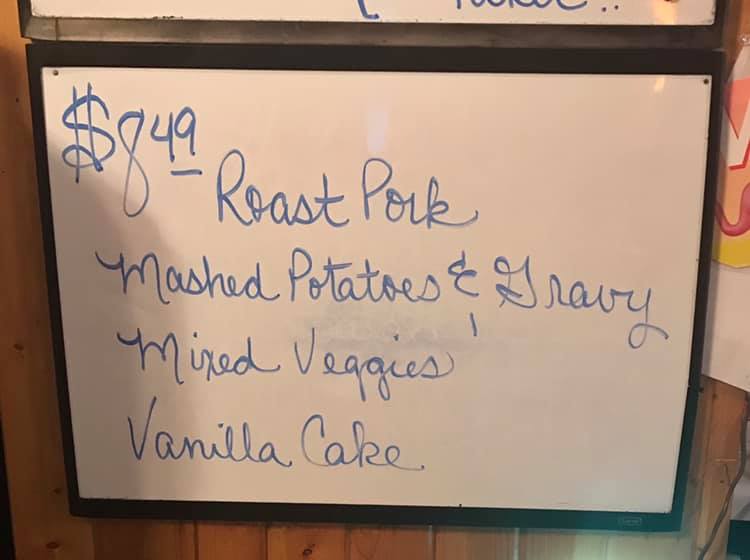 $8.49 Roast Pork
Mashed Potatoes & Gravy
Mixed Veggies
Vanilla Cake